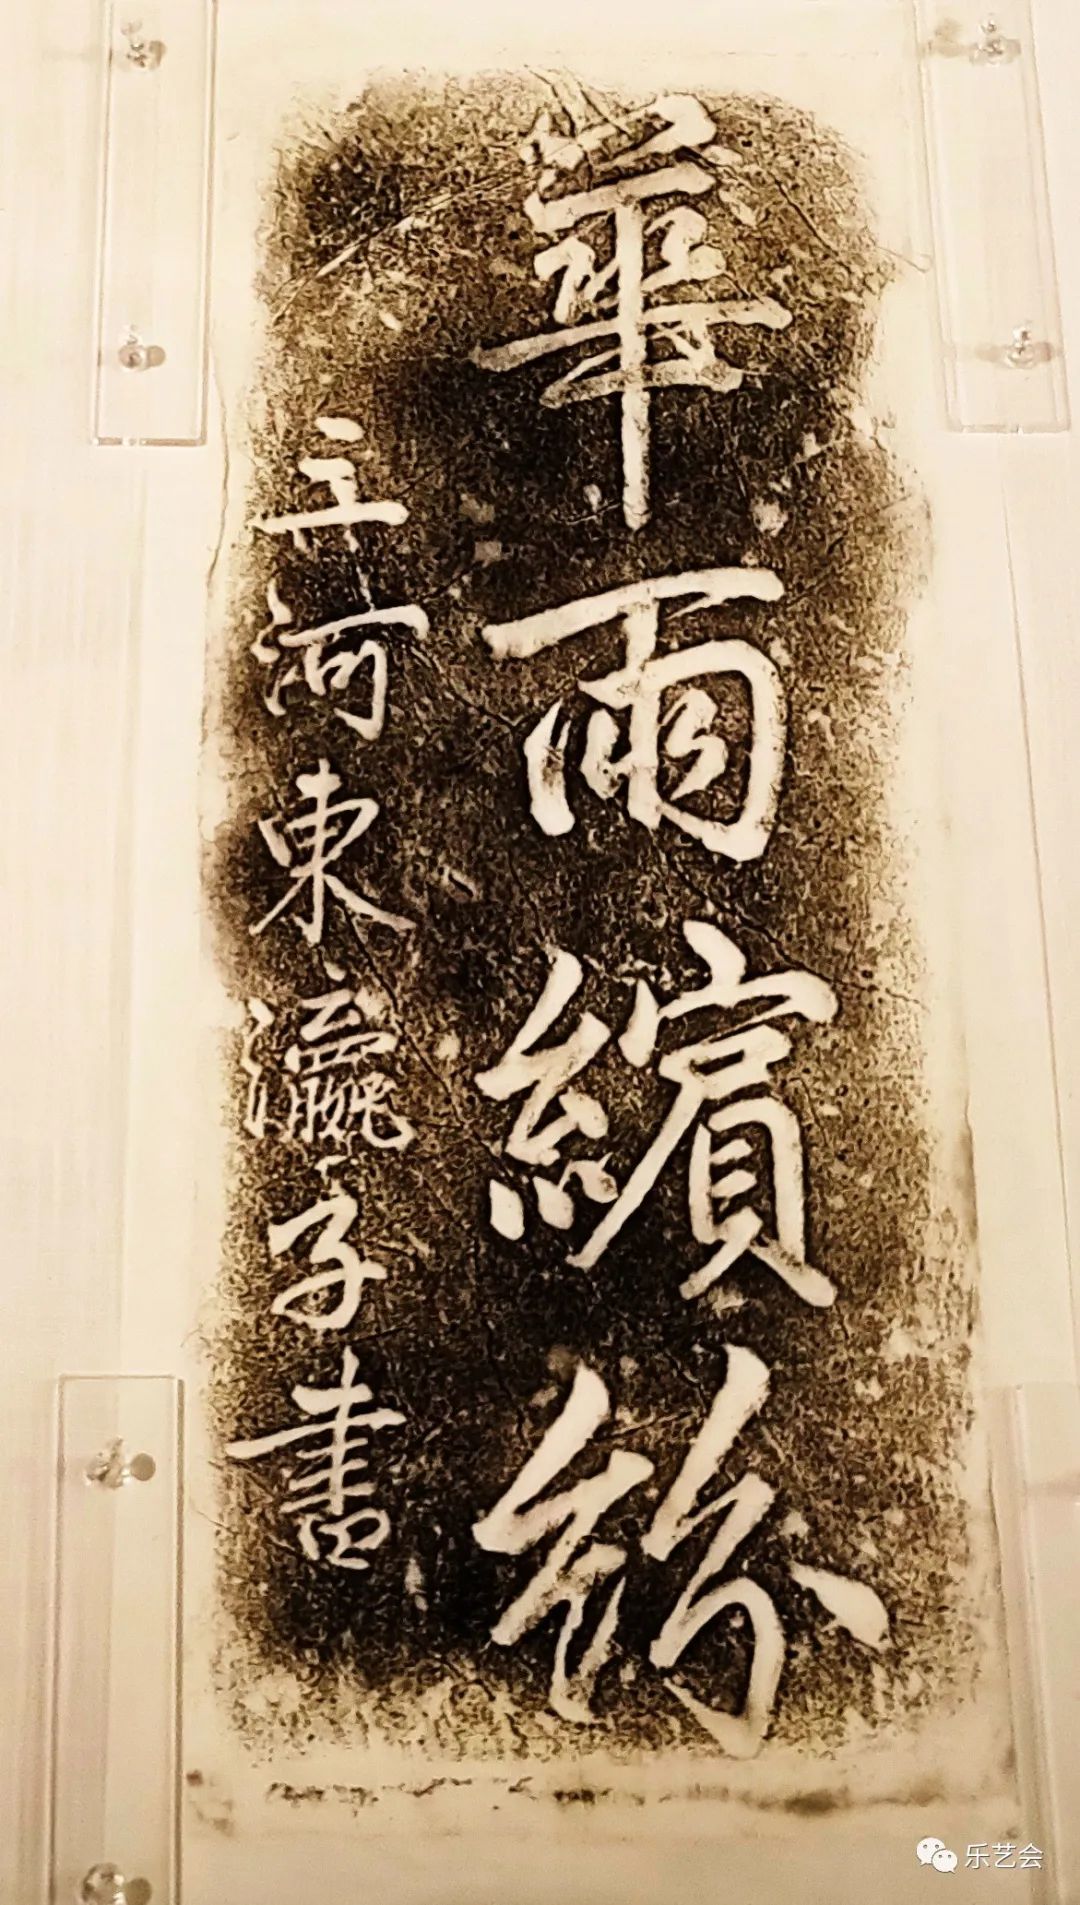 華雨繽紛
河東瀛子書
乐艺会